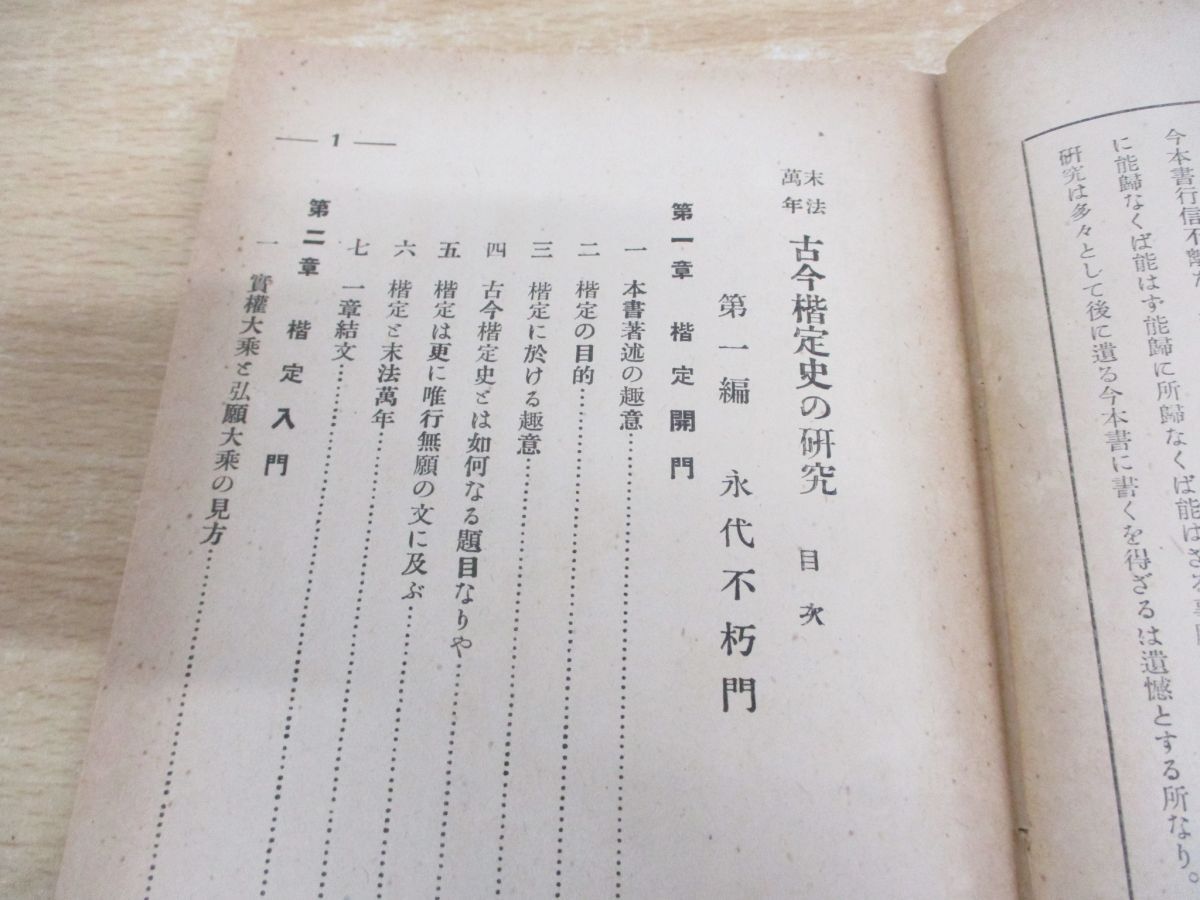 今本書行信不離
に能歸なくば能はず能歸に所歸なくば能はざる
研究は多々として後に遺る今本書に書くを得ざるは遺憾とする所なり。
末法萬年 古今楷定史の研究 目次
第一編 永代不朽門
第一章 楷定開門
一 本書著述の趣意
二 楷定の目的
三 楷定に於ける趣意
四 古今楷定史とは如何なる題目なりや
五 楷定は更に唯行無願の文に及ぶ
六 楷定と末法萬年
七 一章結文
第二章 楷定入門
一 實權大乘と弘願大乘の見方
— 1 —